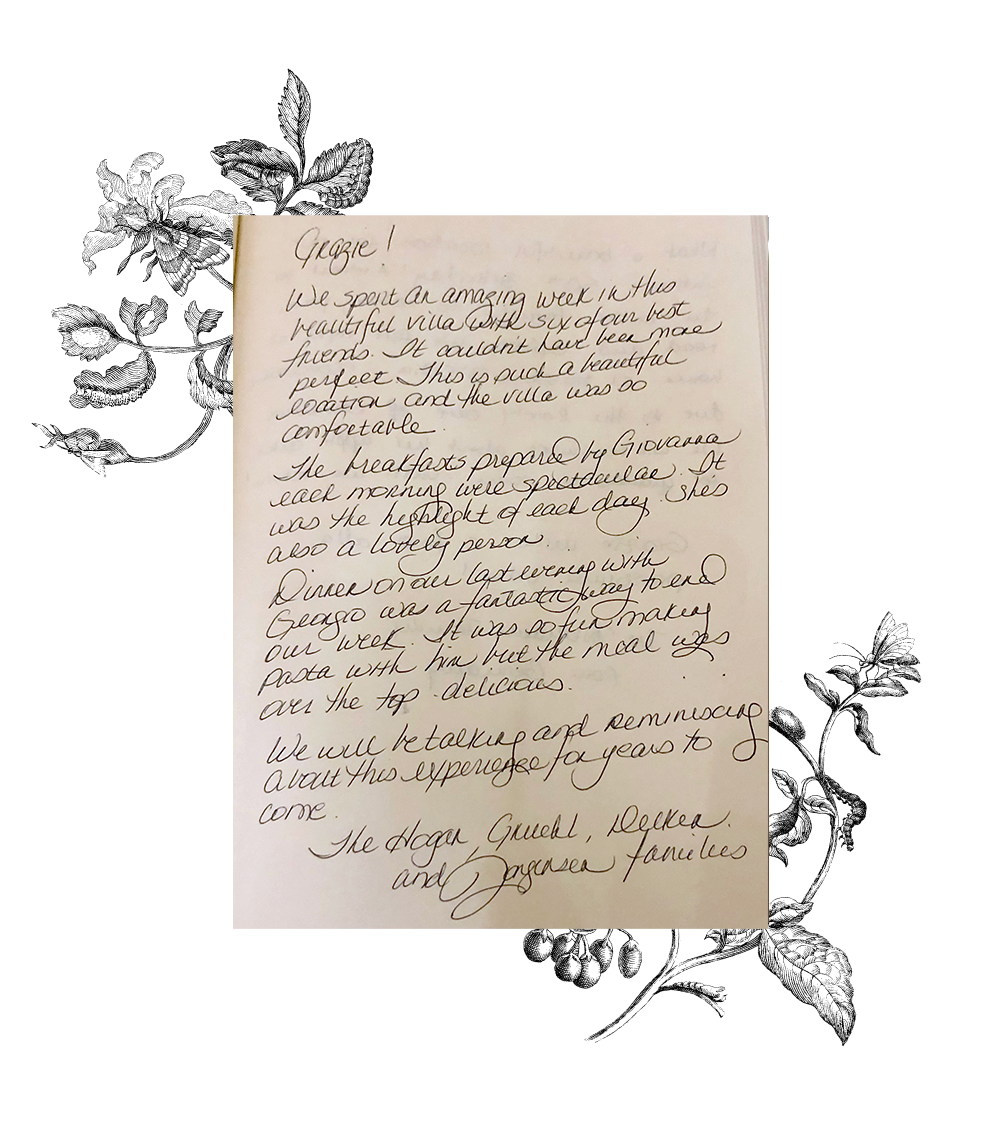 Grazie!
We spent an amazing week in this
beautiful villa with six of our best
friends. It couldn't have been more
perfect. This is such a beautiful
location and the villa was so
comfortable.
The breakfasts prepared by Giovanna
each morning were spectacular. It
was the highlight of each day. She's
also a lovely person.
Dinner on our last evening with
Georgio was a fantastic way to end
our week. It was so fun making
pasta with him but the meal was
over the top delicious.
We will be talking and reminiscing
about this experience for years to
come.
The Hogan, Gruehl, Decker
and Jorgensen families